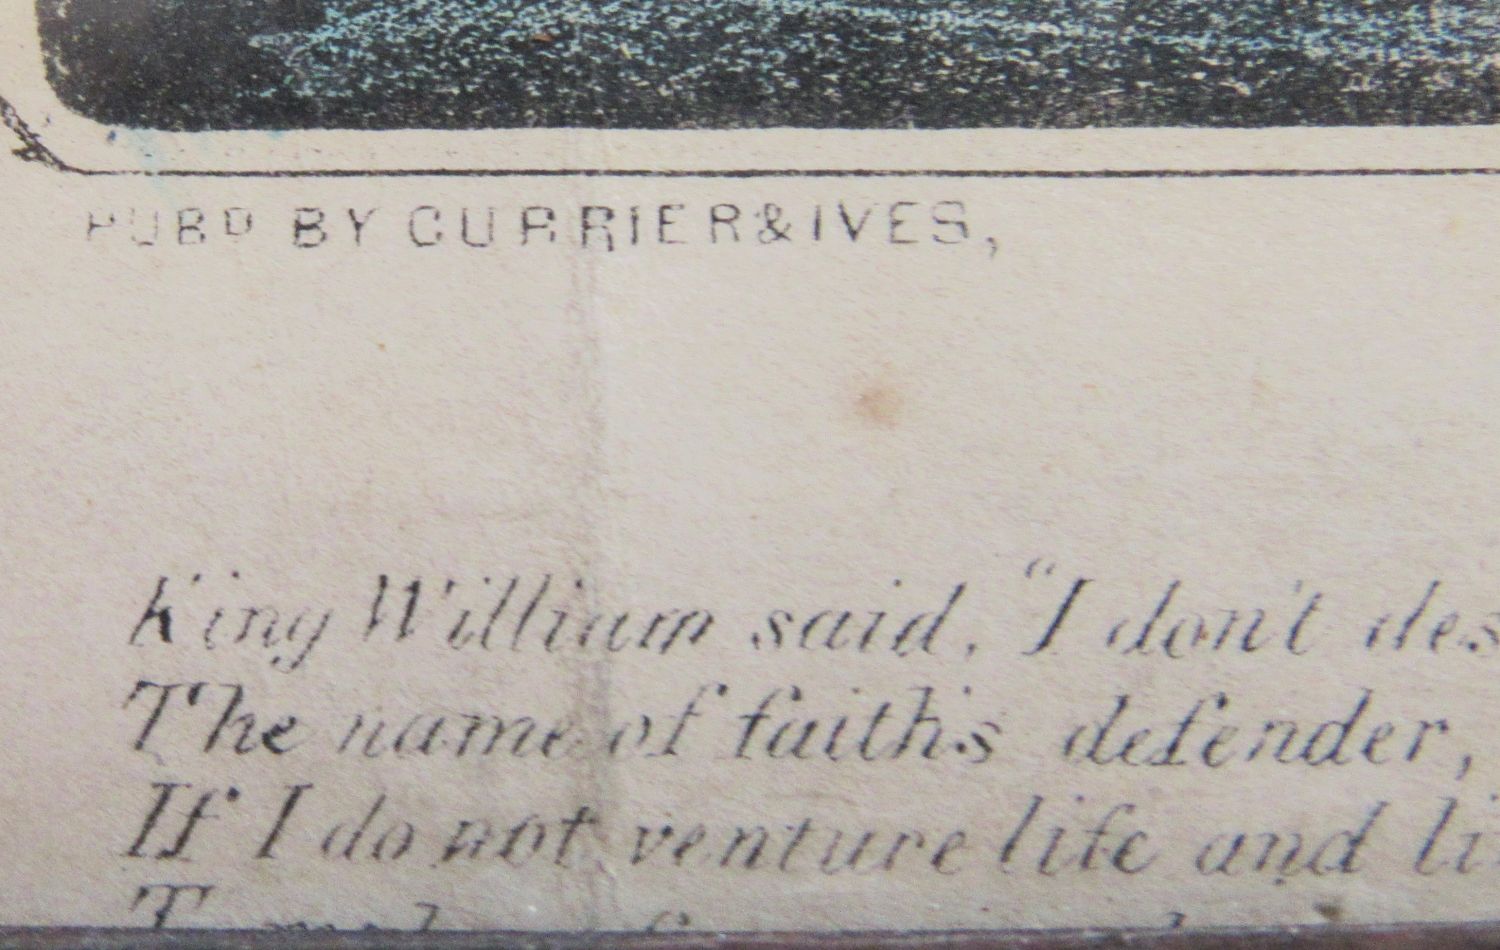 PUBD BY CURRIER & IVES,
King William said, "I don't des
The name of faith's defender,
If I do not venture life and li